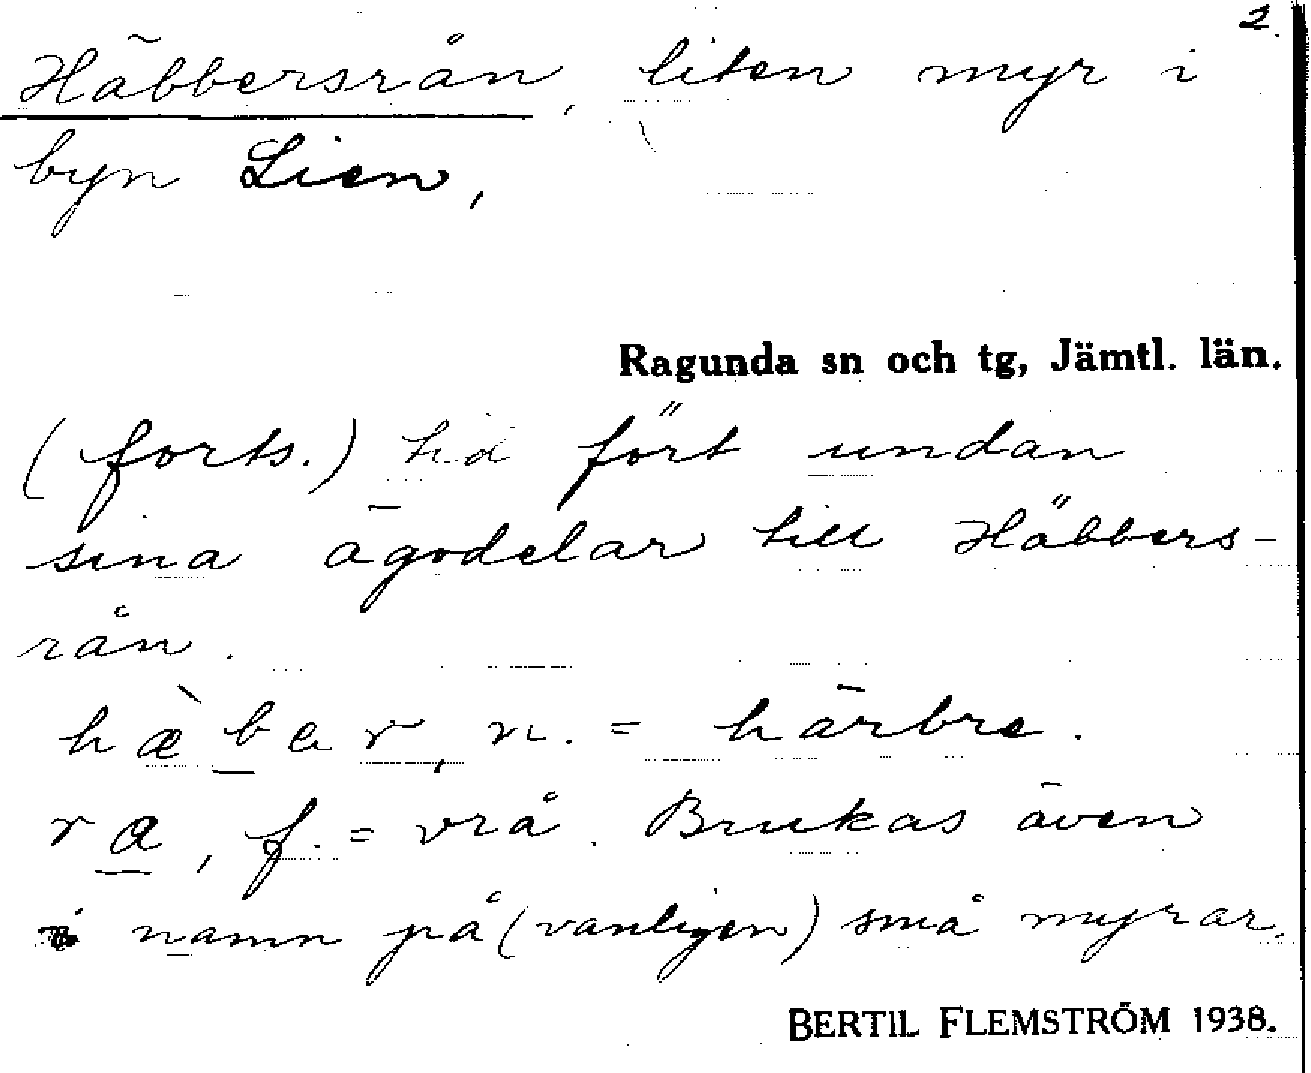 2.
Häbbersrån, liten myr i
byn Lien,
Ragunda sn och tg, Jämtl. län.
(forts.) tid fört undan
sina ägodelar till Häbbers-
rån.
hæ̀bar, n. = härbre.
ra, f. = vrå. Brukas även
i namn på (vanligen) små myrar.
BERTIL FLEMSTRÖM 1938.